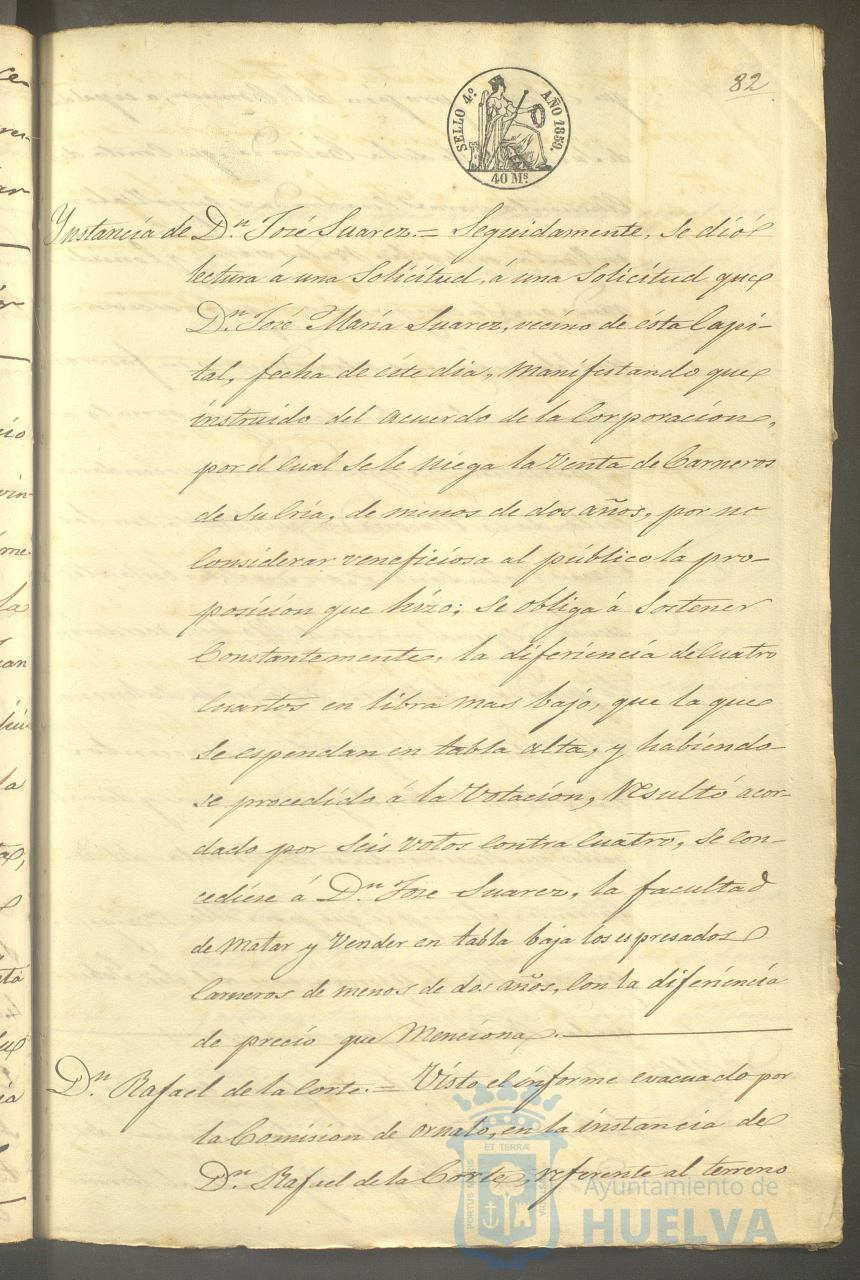 82
SELLO 4º. AÑO 1859.
40 Ms.
Ynstancia de Dn. José Suarez.= Seguidamente, se dió
lectura á una solicitud, á una solicitud que
Dn. José María Suarez, vecino de ésta Capi-
tal, fecha de éste dia, manifestando que
instruido del acuerdo de la Corporacion,
por el cual se le niega la Venta de Carneros
de su Cria, de menos de dos años, por no
considerar veneficiosa al público la pro-
posicion que hizo; se obliga á sostener
Constantemente, la diferiencia de Cuatro
Cuartos en libra mas bajo, que la que
se espendan en tabla alta, y habiendo-
se procedido á la Votacion, resultó acor-
dado por seis votos contra Cuatro, se con-
cediese á Dn. Jose Suarez, la facultad
de Matar y Vender en tabla baja los espresados
Carneros de menos de dos años, con la diferiencia
de precio que menciona.
Dn. Rafael de la Corte.= Visto el informe evacuado por
la Comision de ornato, en la instancia de
Dn. Rafael de la Corte, referente al terreno
PORTUS MARIS
ET TERRÆ
Ayuntamiento de
HUELVA